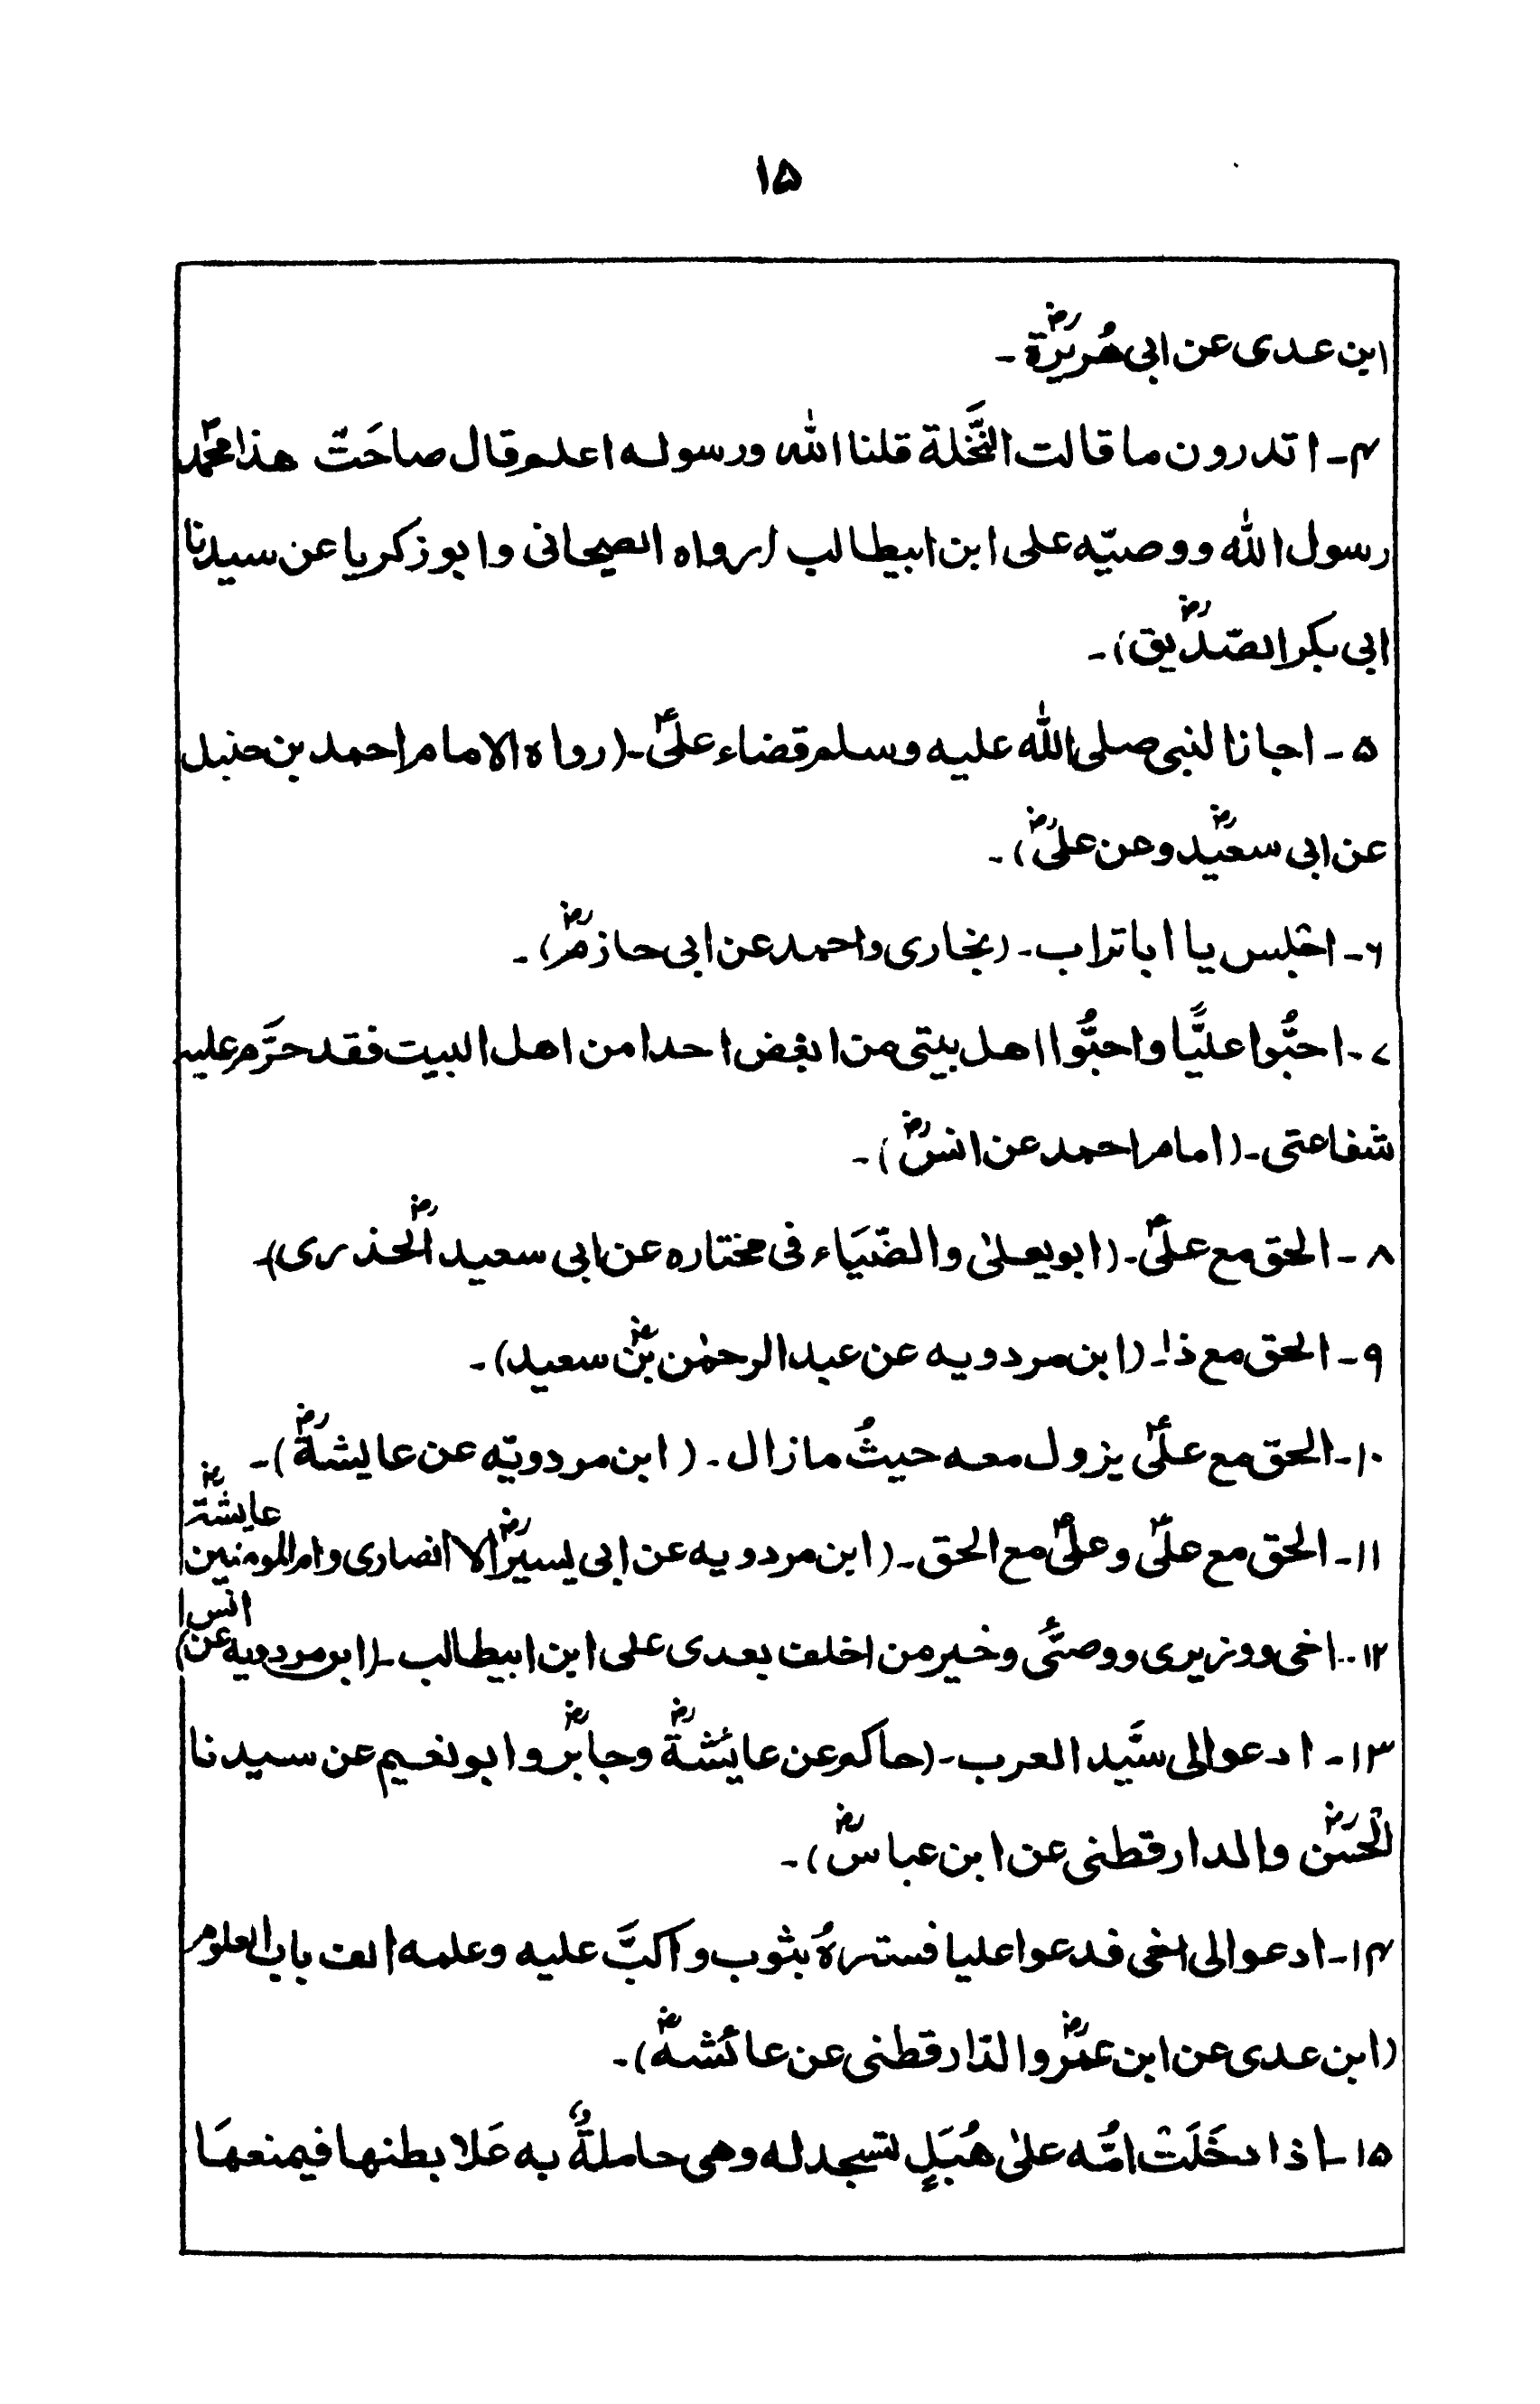 ۱۵
ابن عدی عن ابی هُریرة رض ـ
۴ ـ اتدرون ما قالت النَّخلة قلنا الله ورسوله اعلم قال صاحَتْ هذا محمّد
رسول الله ووصیّه علی ابن ابیطالب (رواه الصیحانی وابو زکریا عن سیدنا
ابی بکر الصّدیق رض) ـ
۵ ـ اجاز النبی صلی الله علیه وسلم قضاء علیؑ ـ (رواه الامام احمد بن حنبل
عن ابی سعید رض وعن علی رض) ـ
۶ ـ اجلس یا اباتراب ـ (بخاری واحمد عن ابی حازم رض) ـ
۷ ـ احبُّوا علیًّا واحبُّوا اهل بیتی من ابغض احدا من اهل البیت فقد حرَّم علیه
شفاعتی ـ (امام احمد عن انس رض) ـ
۸ ـ الحق مع علیؑ ـ (ابویعلیٰ والضّیَاء فی مختاره عن ابی سعید رض الحذری) ـ
۹ ـ الحق مع ذا ـ (ابن مردویه عن عبدالرحمٰن بن سعید) ـ
۱۰ ـ الحقّ مع علیؑ یزول معه حیثُ مازال ـ (ابن مردویّه عن عایشة رض) ـ
۱۱ ـ الحق مع علیؑ وعلیؑ مع الحق ـ (ابن مردویه عن ابی لیسیر رض الاانصاری وام المومنین عایشة رض
۱۲ ـ اخی ووزیری ووصیُّی وخیر من اخلف بعدی علی ابن ابیطالب ـ (ابن مردویه عن انس)
۱۳ ـ ادعوالی سیَّد العرب ـ (حاکم عن عایشة رض وجابر رض وابو نعیم عن سیدنا
الحسن رض والدارقطنی عن ابن عباس رض) ـ
۱۴ ـ ادعوالی اخی فدعوا علیا فسترهُ بثوب واکبَّ علیه وعلمه الف باب العلوم
(ابن عدی عن ابن عمر رض والدّارقطنی عن عائشه رض) ـ
۱۵ ـ اذا دخَلَتْ امُّه علیٰ هُبَلٍ لتسجد له وهی حاملةٌ به عَلا بطنها فیمنعهَا